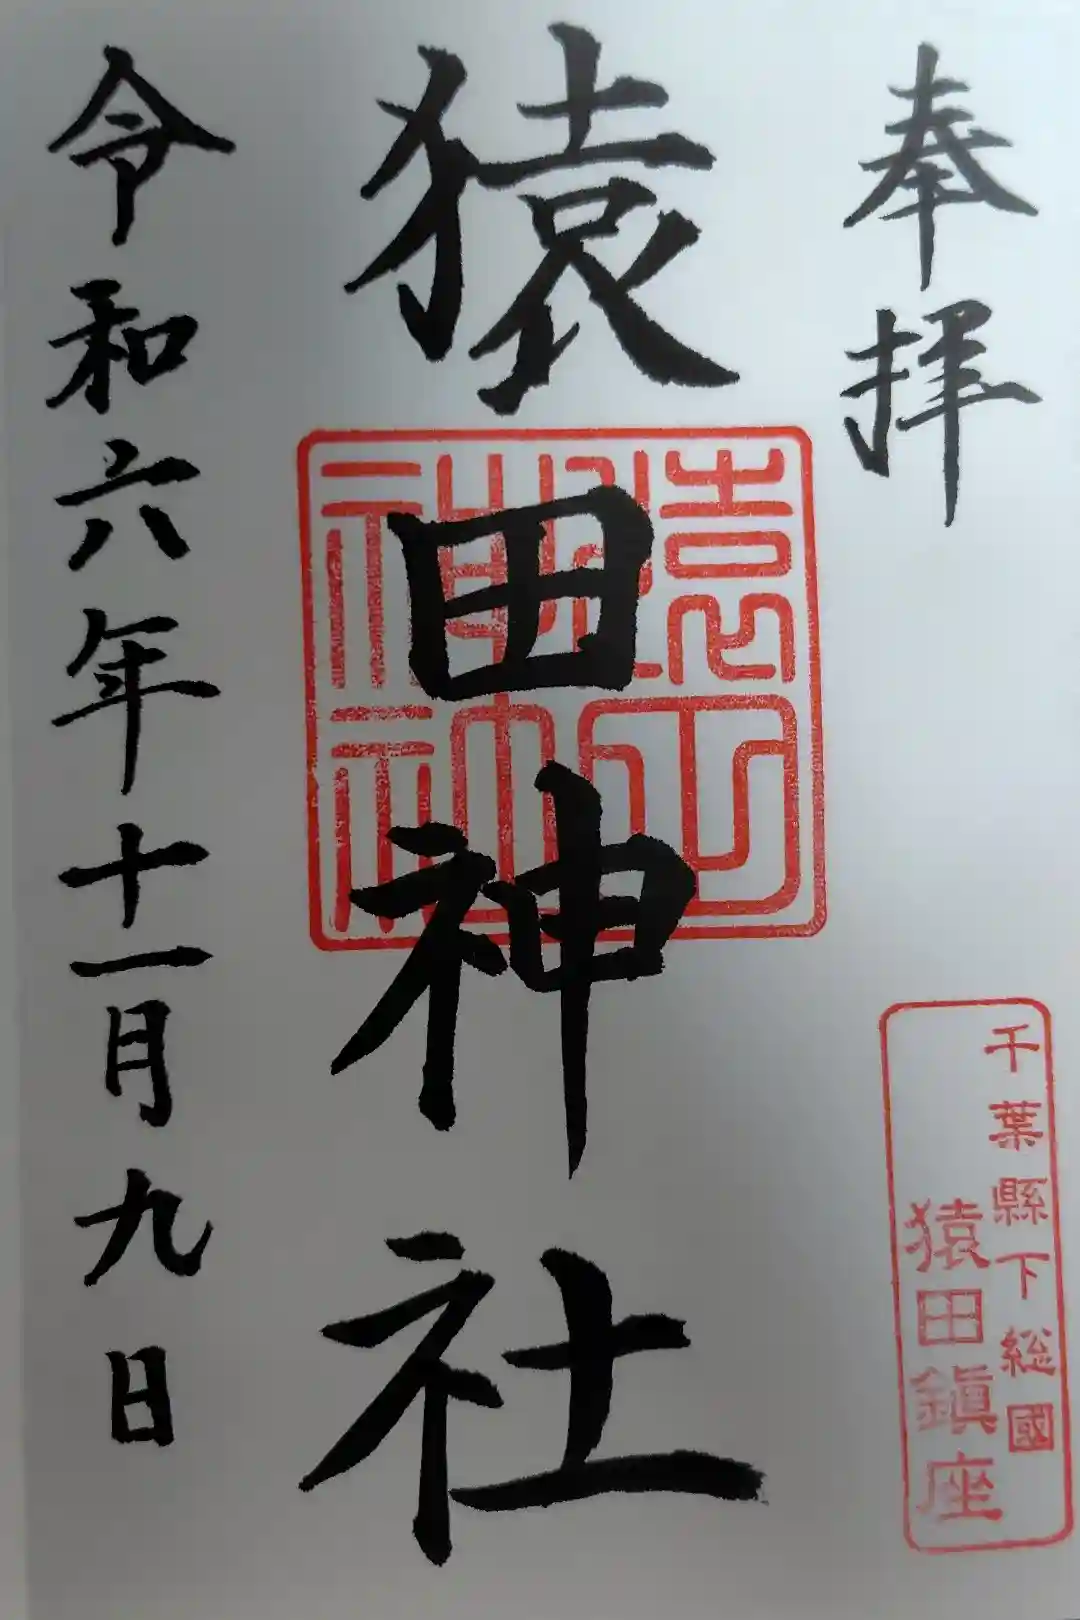 奉拝
千葉縣下総國
猿田鎭座
猿田神社
令和六年十一月九日